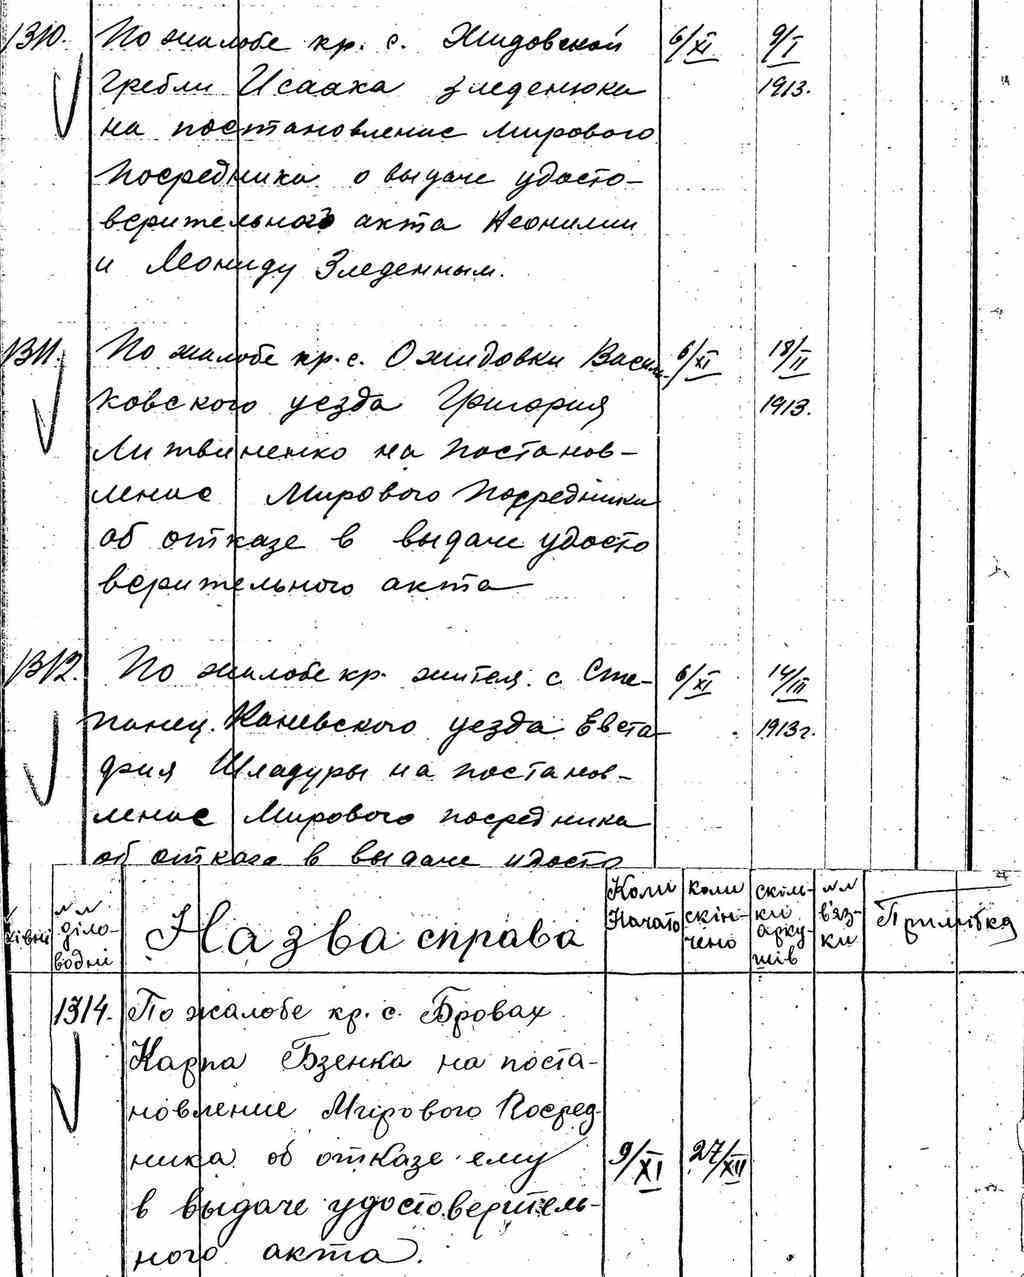 1310. По жалобе кр. с. Жидовской 6/XI 9/I
Гребли Исаака Зледенюка 1913.
на постановление Мирового
Посредника о выдаче удосто-
верительного акта Неонилии
и Леониду Зледенным.
1311. По жалобе кр. с. Ожидовки Василь- 6/XI 18/II
ковского уезда Григория 1913.
Литвиненко на постанов-
ление Мирового Посредника
об отказе в выдаче удосто
верительного акта
1312. По жалобе кр. жител. с Сте- 6/XI 14/III
панец. Каневского уезда Евста- 1913г.
фия Шладуры на постанов-
ление Мирового посредника
об отказе в выдаче удосто
№№ діло-водні Назва справа Коли Начато коли скін-чено скіль-ки арку-шів №№ в'яз-ки Примітка
1314. По жалобе кр. с. Бровах
Карпа Бзенка на поста-
новление Мирового Посред-
ника об отказе ему 9/XI 27/XII
в выдаче удостоверитель-
ного акта.